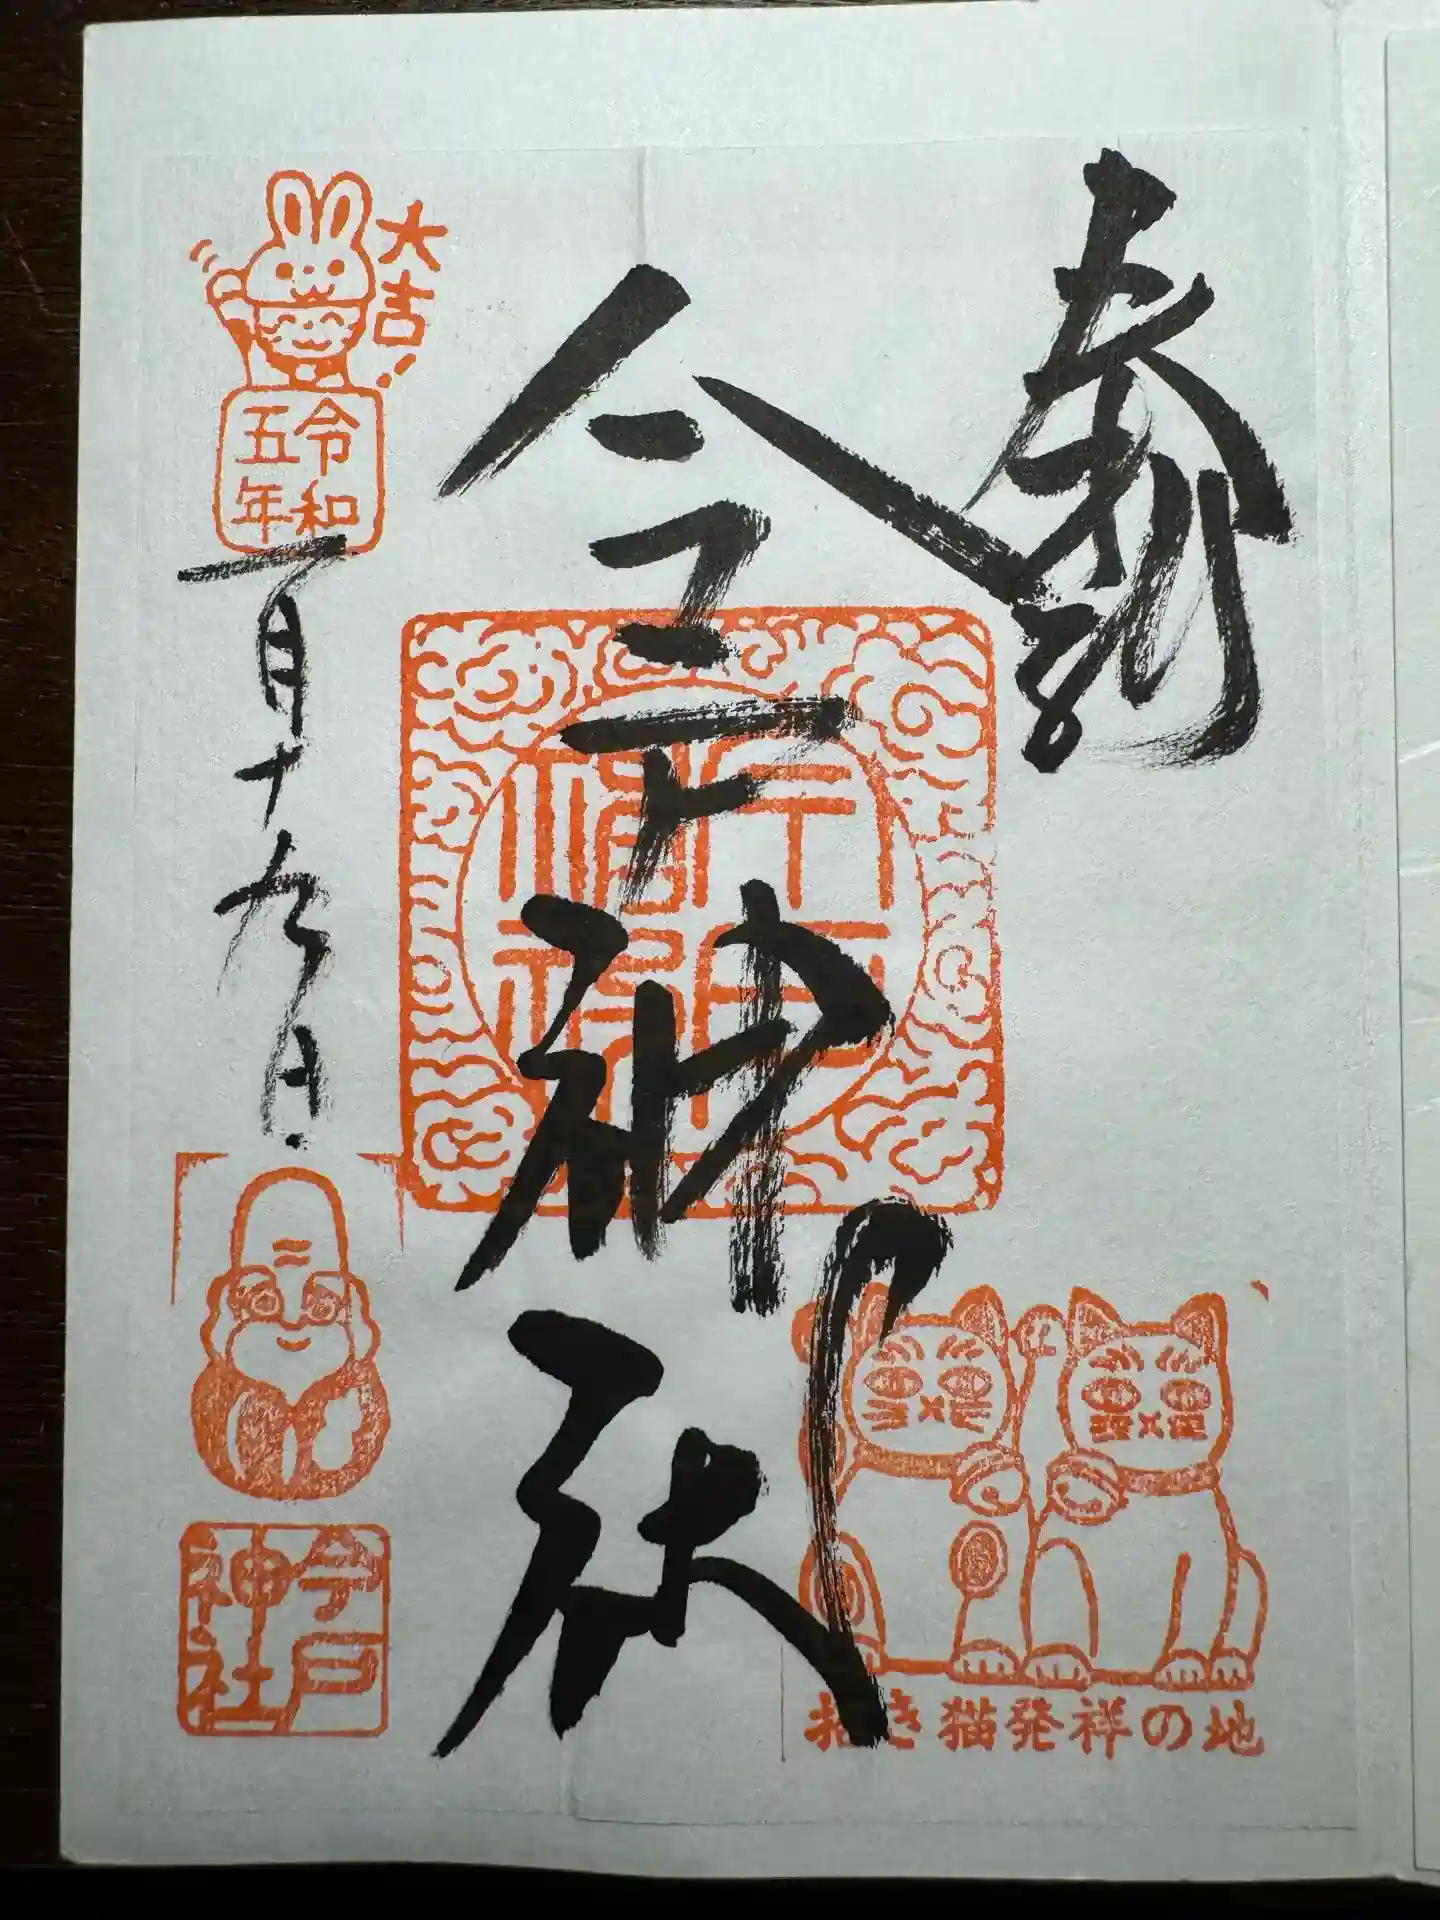 奉拝
今戸神社
招き猫発祥の地
大吉!
令和
五年
一月十九日
今戸
神社